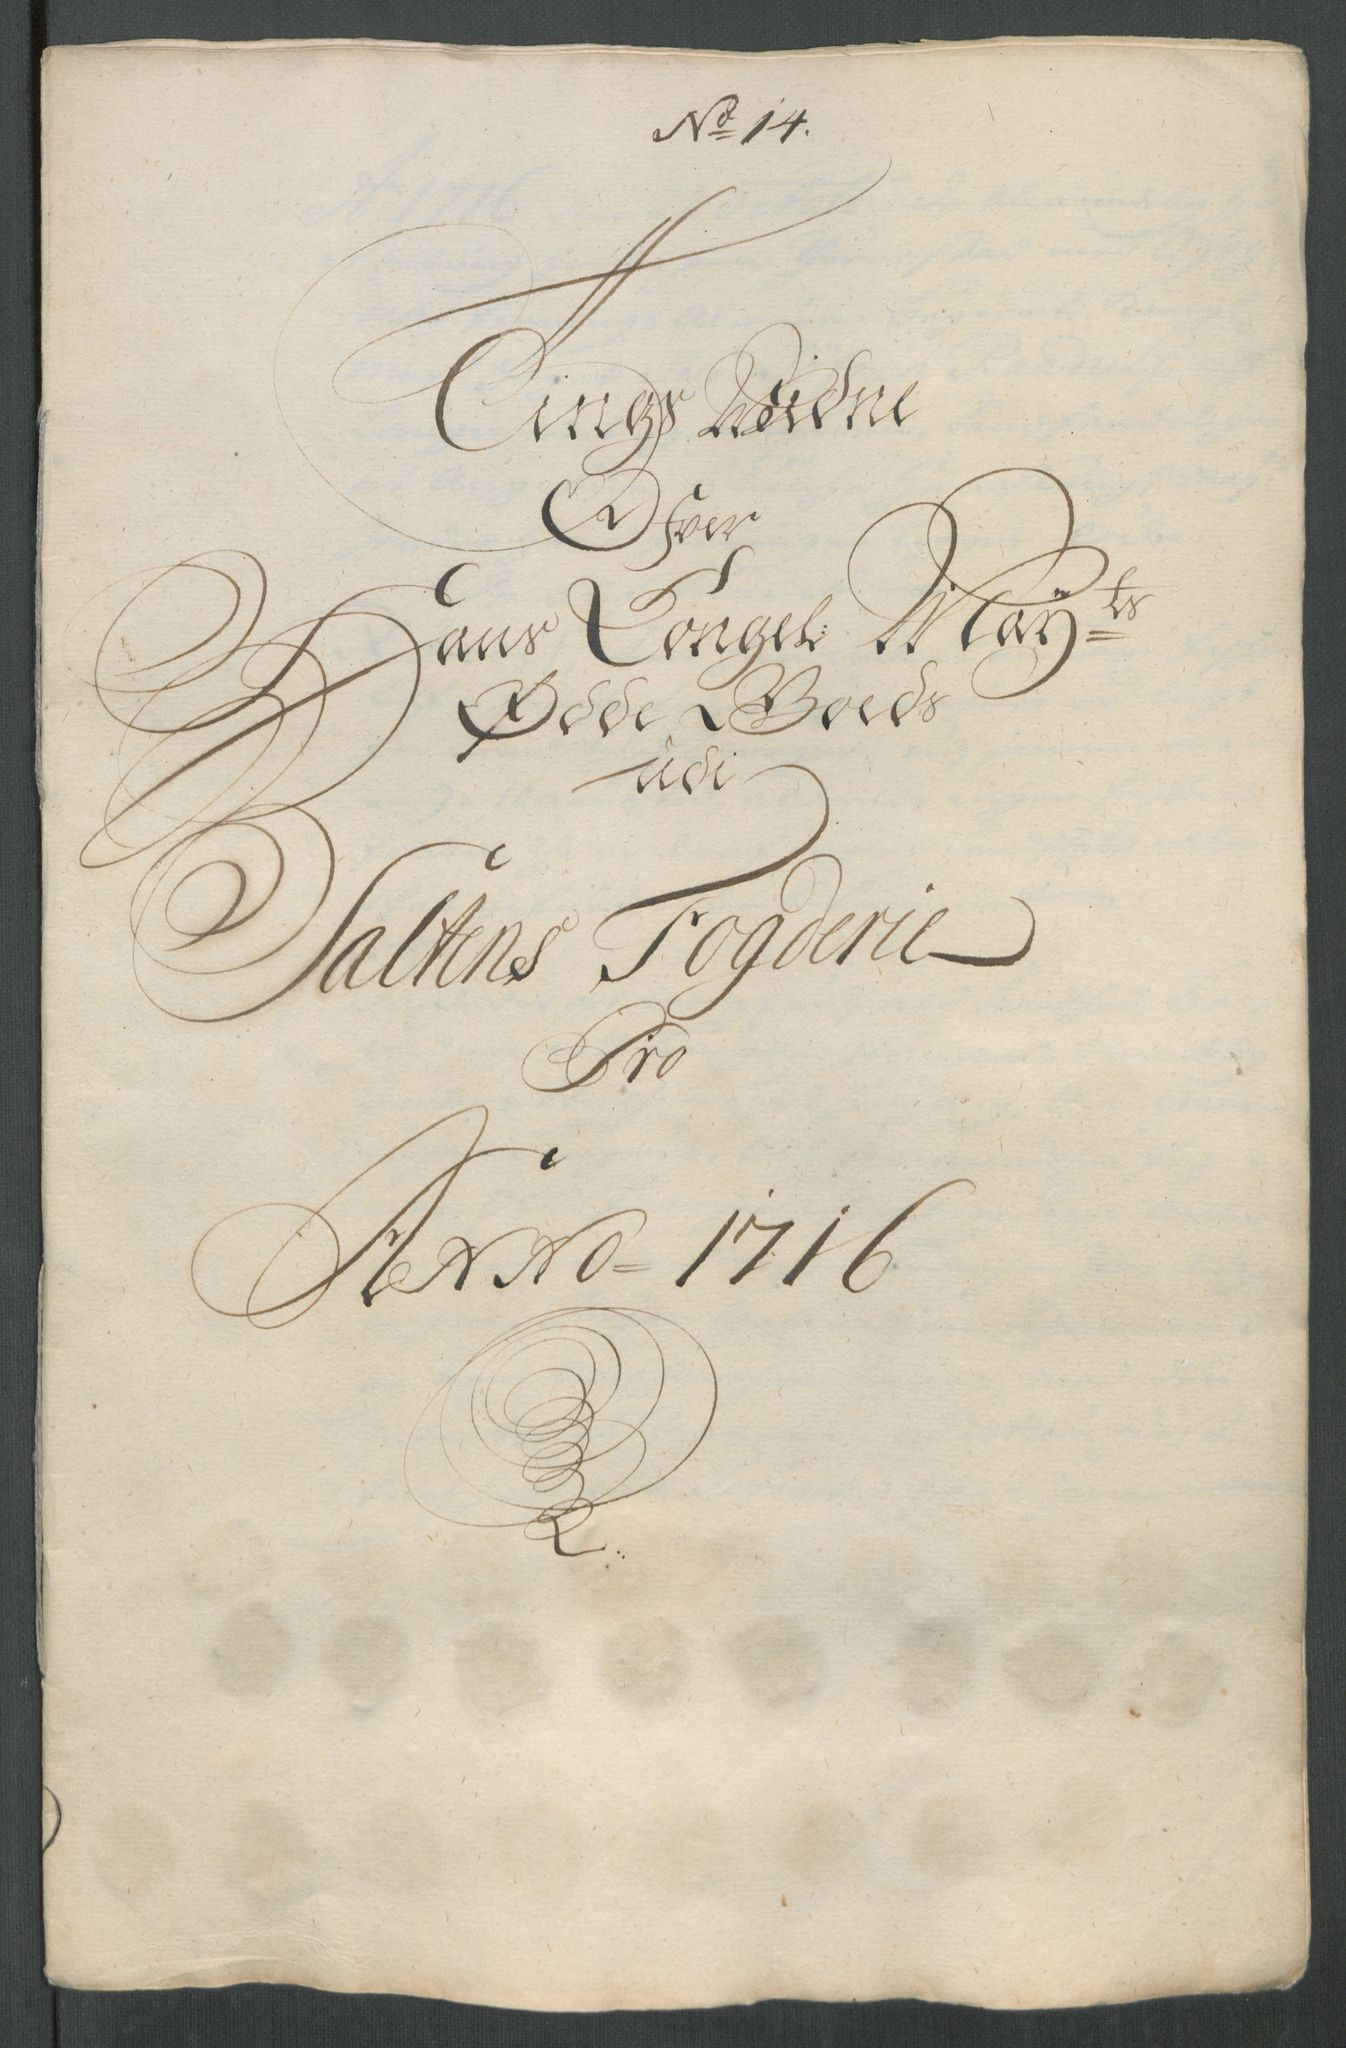 No 14.
Tings Widne
Ofver
Hans Kongel: Mayts
Ødde Goeds
udi
Saltens Fogderie
Pro
Anno 1716